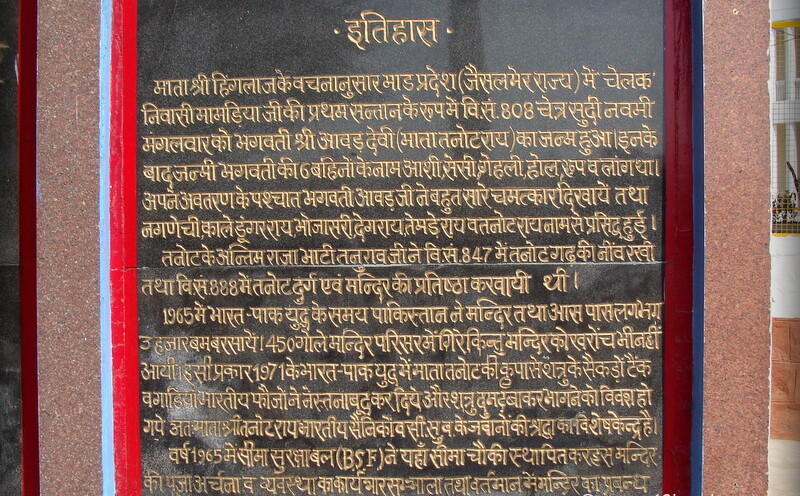 · इतिहास ·
माता श्री हिंगलाज के वचनानुसार माड प्रदेश (जैसलमेर राज्य) में 'चेलक'
निवासी मामड़िया जी की प्रथम सन्तान के रूप में वि.सं. 808 चेत्र सुदी नवमी
मंगलवार को भगवती श्री आवड़ देवी (माता तनोटराय) का जन्म हुआ। इनके
बाद जन्मी भगवती की 6 बहिनों के नाम आशी, सेसी, गेहली, होल, रूप व लांग था।
अपने अवतरण के पश्चात भगवती आवड़ जी ने बहुत सारे चमत्कार दिखाये तथा
नगणेची, काले डूंगरराय, भोजासरी, देगराय, तेमडेराय व तनोटराय नाम से प्रसिद्ध हुई।
तनोट के अन्तिम राजा भाटी तनुरावजी ने वि.सं. 847 में तनोट गढ़ की नींव रखी
तथा वि.सं. 888 में तनोट दुर्ग एवं मन्दिर की प्रतिष्ठा करवायी थी।
1965 में भारत-पाक युद्ध के समय पाकिस्तान ने मन्दिर तथा आस पास लगभग
हजार बम बरसाये। 450 गोले मन्दिर परिसर में गिरे किन्तु मन्दिर को खरोंच भी नहीं
आयी। इसी प्रकार 1971 के भारत-पाक युद्ध में माता तनोट की कृपा से शत्रु के सैकडों टैंक
व गाडियां भारतीय फौजों ने नेस्तनाबूद कर दिये और शत्रु दुम दबाकर भागने को विवश हो
गये अतः माता श्री तनोटराय भारतीय सैनिकों व सी.सु.ब के जवानों की श्रद्धा का विशेष केन्द्र है।
वर्ष 1965 में सीमा सुरक्षा बल (BSF) ने यहाँ सीमा चौकी स्थापित कर इस मन्दिर
की पूजा अर्चना व व्यवस्था का कार्यभार सम्भाला तथा वर्तमान में मन्दिर का प्रबन्ध